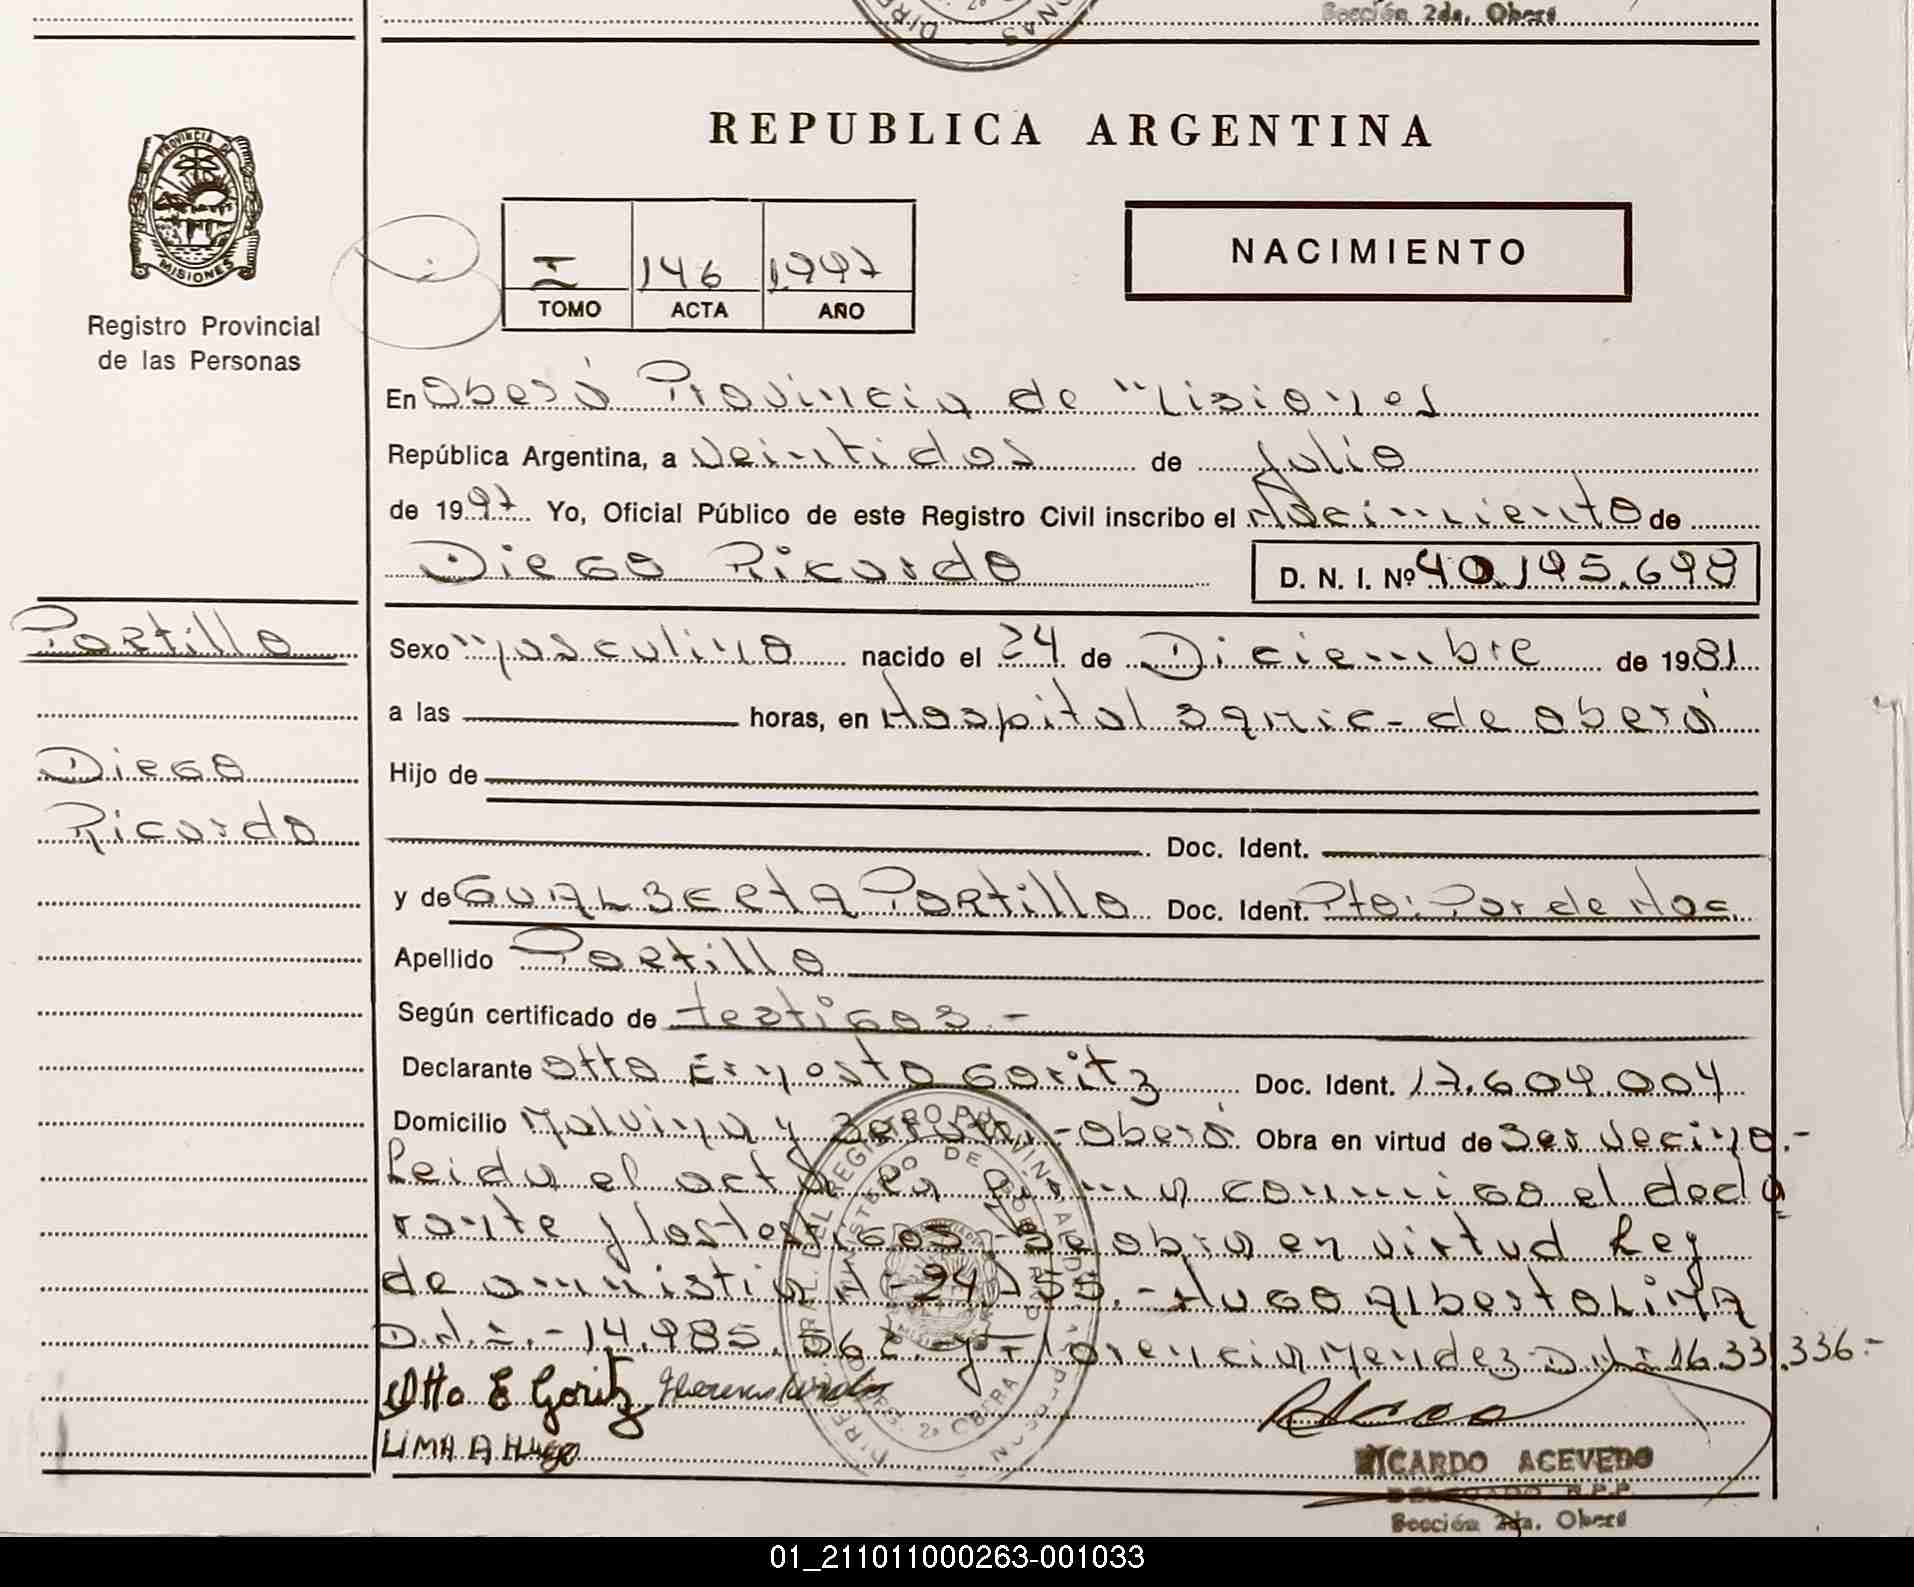 Sección 2da. Oberá
REPUBLICA ARGENTINA
PROVINCIA DE
MISIONES
Registro Provincial
de las Personas
I 146 1997
TOMO ACTA AÑO
NACIMIENTO
En Oberá Provincia de Misiones
República Argentina, a veintidos de Julio
de 1997 Yo, Oficial Público de este Registro Civil inscribo el Nacimiento de
Diego Ricardo D. N. I. Nº 40.195.698
Portillo
Diego
Ricardo
Sexo Masculino nacido el 24 de Diciembre de 1981
a las horas, en Hospital Samic - de Oberá
Hijo de
Doc. Ident.
y de Gualberta Portillo Doc. Ident. Pto: Par de Nac.
Apellido Portillo
Según certificado de testigos.-
Declarante Otto Ernosto Goritz Doc. Ident. 17.609.004
Domicilio Malvina y - Oberá. Obra en virtud de Ser vecino.-
Leida el acta la firman conmigo el decla
rante y los testigos.- Se obra en virtud Ley
de amnistia Nº 24.755.- Hugo Alberto Lima
D.N.I.- 14.985.562.- y Florencia Mendez D.N.I. 16.331.336.-
Otto E Goritz
LIMA A Hugo
RICARDO ACEVEDO
DELEGADO R.P.P.
Sección 2da. Oberá
01_211011000263-001033